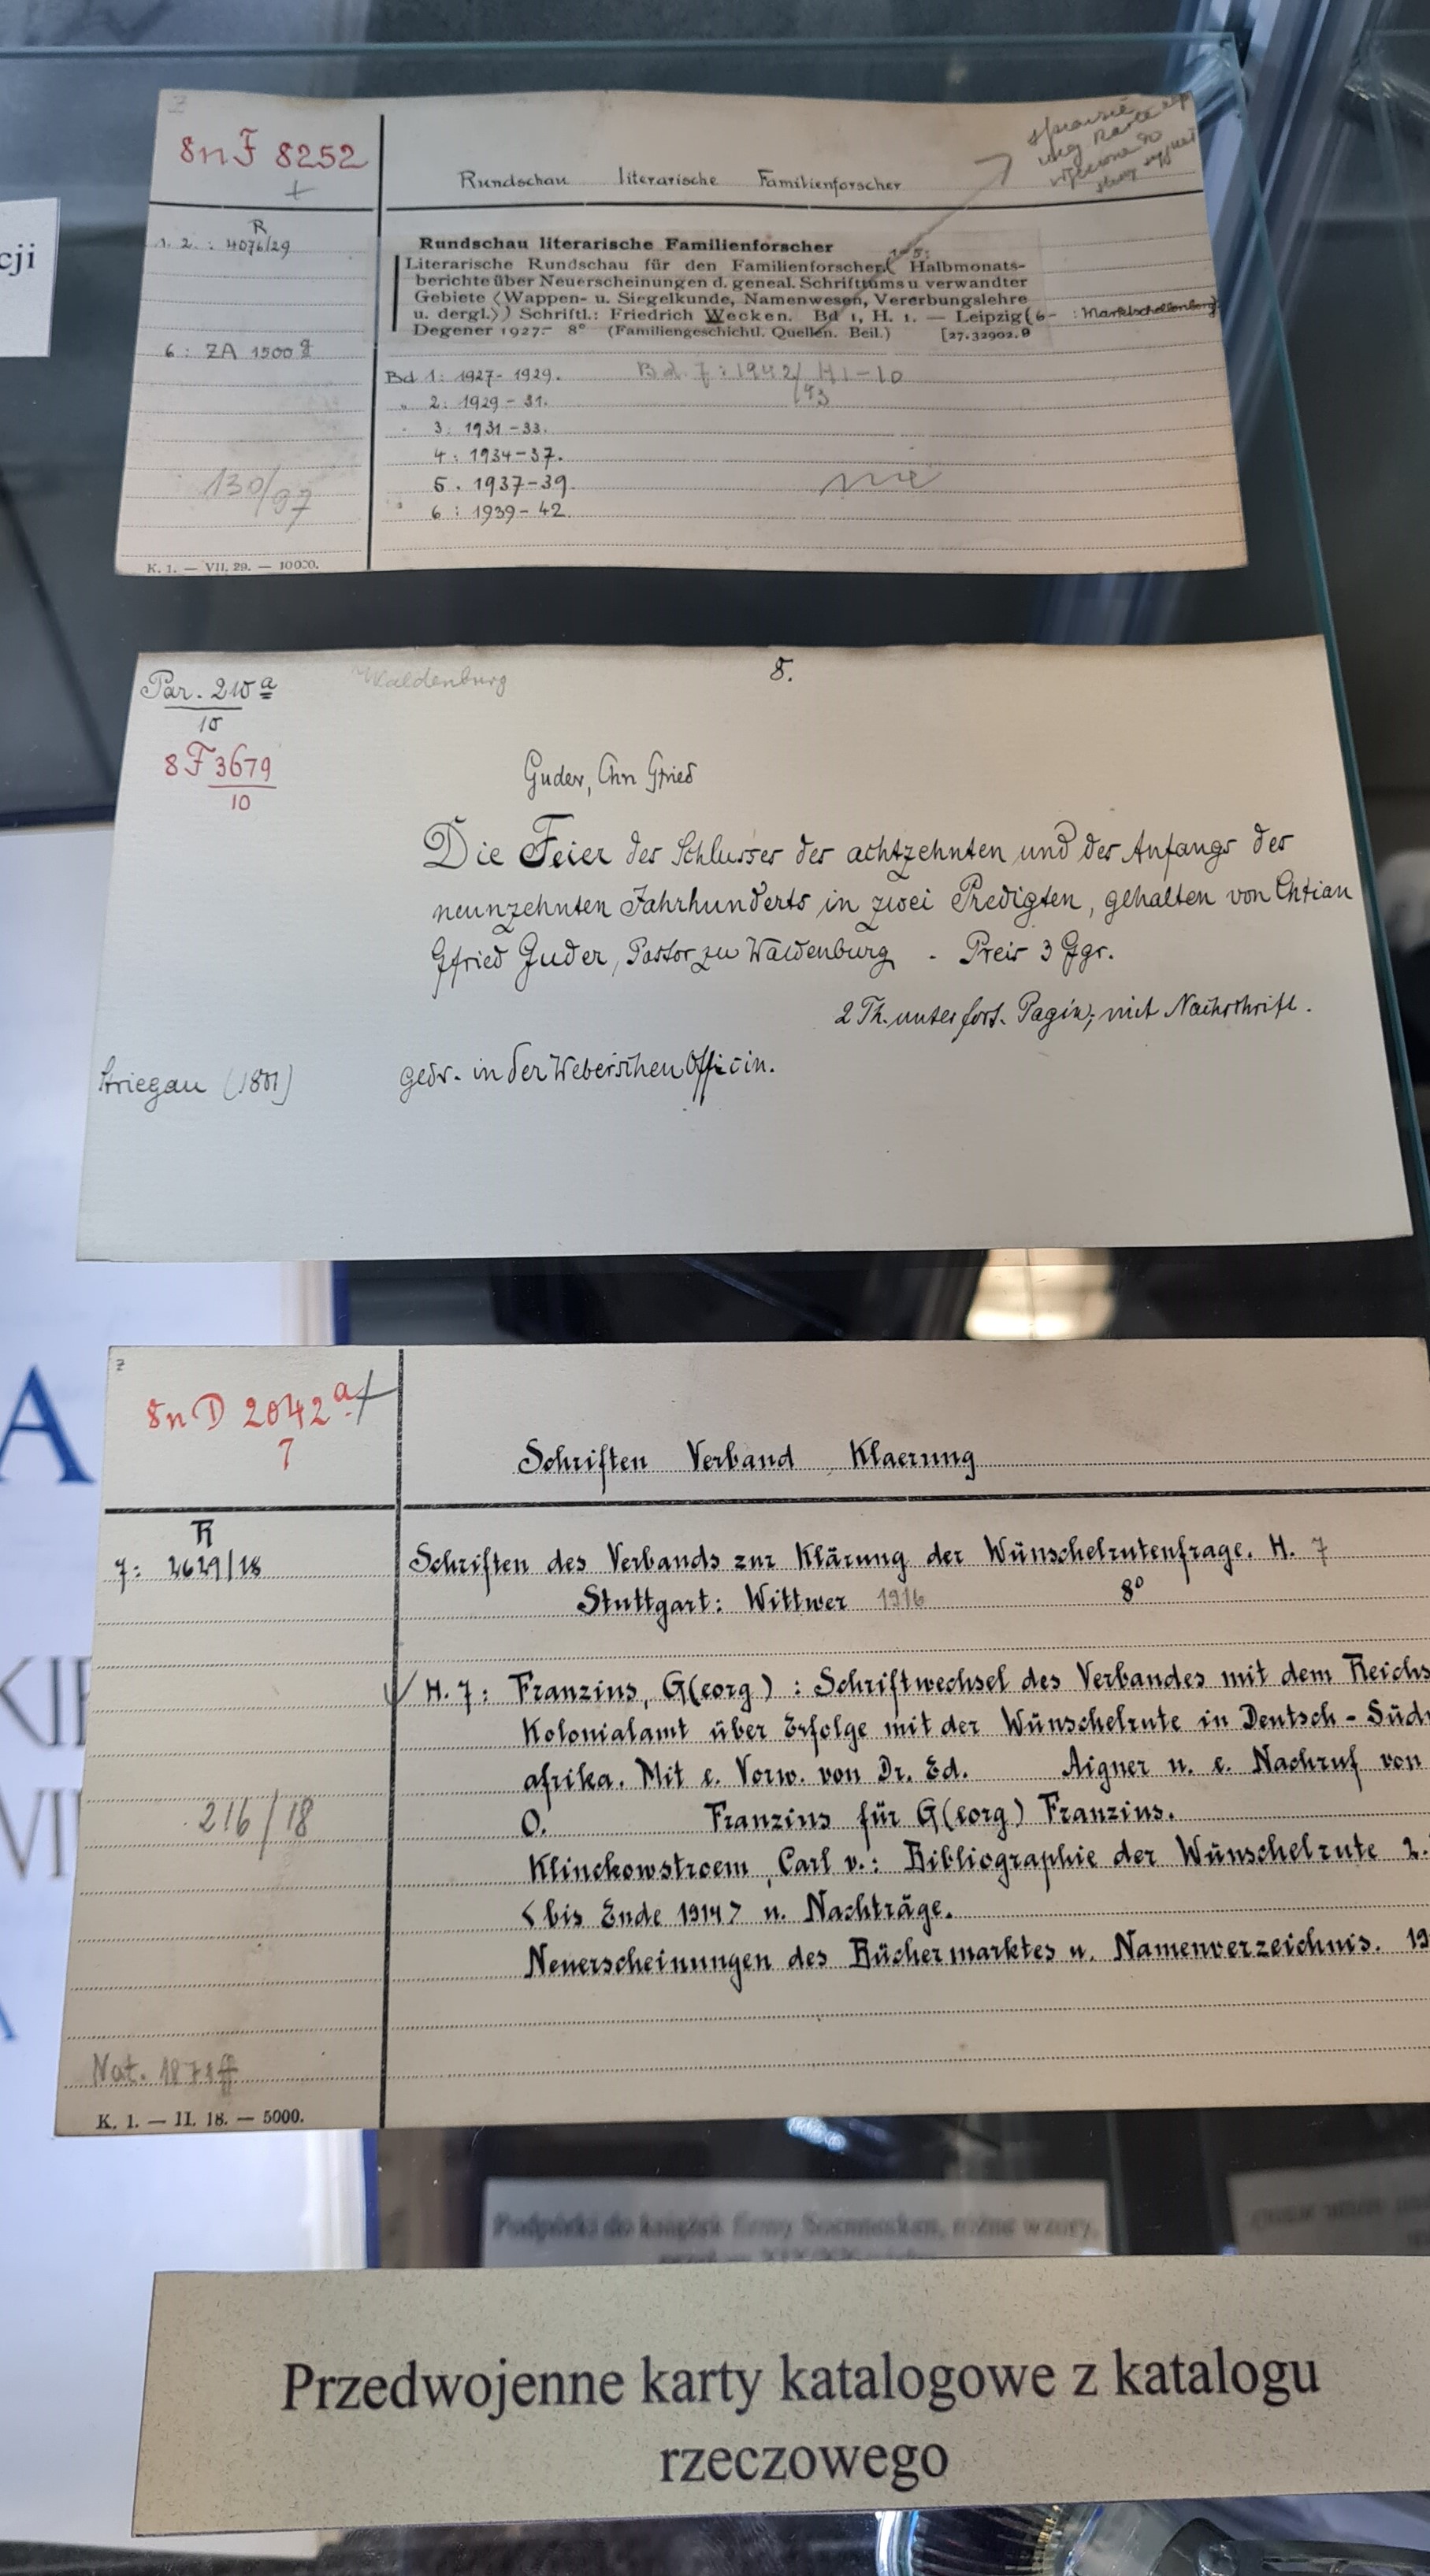 cji
Z
8n F 8252
+
Rundschau literarische Familienforscher
R
1. 2. : 4076/29
Rundschau literarische Familienforscher
1-5:
Literarische Rundschau für den Familienforscher( Halbmonats-
berichte über Neuerscheinungen d. geneal. Schrifttums u verwandter
Gebiete <Wappen- u. Siegelkunde, Namenwesen, Vererbungslehre
u. dergl.>) Schriftl.: Friedrich Wecken. Bd 1, H. 1. — Leipzig(6- : Marktschellenberg):
Degener 1927- 8° (Familiengeschichtl. Quellen. Beil.) [27.32902.θ
6 : ZA 1500 g
Bd 1: 1927-1929. Bd. 7: 1942/ H1-10
/43
" 2: 1929-31.
3: 1931-33.
4: 1934-37.
5. 1937-39.
6: 1939-42.
130/97
nie
K. 1. — VII. 29. — 10000.
Par. 210 a
10
Waldenburg
8.
8 F 3679
10
Guder, Chn Gfried
Die Feier des Schlusses des achtzehnten und des Anfangs des
neunzehnten Jahrhunderts in zwei Predigten, gehalten von Chtian
Gfried Guder, Pastor zu Waldenburg . Preis 3 Ggr.
2 Th. unter fort. Pagin; mit Nachschrift.
Striegau (1801) gedr. in der Weberschen Officin.
Z
8n D 2042 a +
7
Schriften Verband Klaerung
R
7: 2629/18
Schriften des Verbands zur Klärung der Wünschelrutenfrage. H. 7
Stuttgart: Wittwer 1916 8°
H. 7: Franzius, G(eorg) : Schriftwechsel des Verbandes mit dem Reichs
Kolonialamt über Erfolge mit der Wünschelrute in Deutsch-Südw
afrika. Mit e. Vorw. von Dr. Ed. Aigner u. e. Nachruf von
216/18
O. Franzius für G(eorg) Franzius.
Klinckowstroem, Carl v.: Bibliographie der Wünschelrute 2.
<bis Ende 1914> u. Nachträge.
Neuerscheinungen des Büchermarktes u. Namenverzeichnis. 19
Nat. 1871ff
K. 1. — II. 18. — 5000.
A
Podpórki do książek firmy Soennecken, różne wzory,
Przedwojenne karty katalogowe z katalogu
rzeczowego